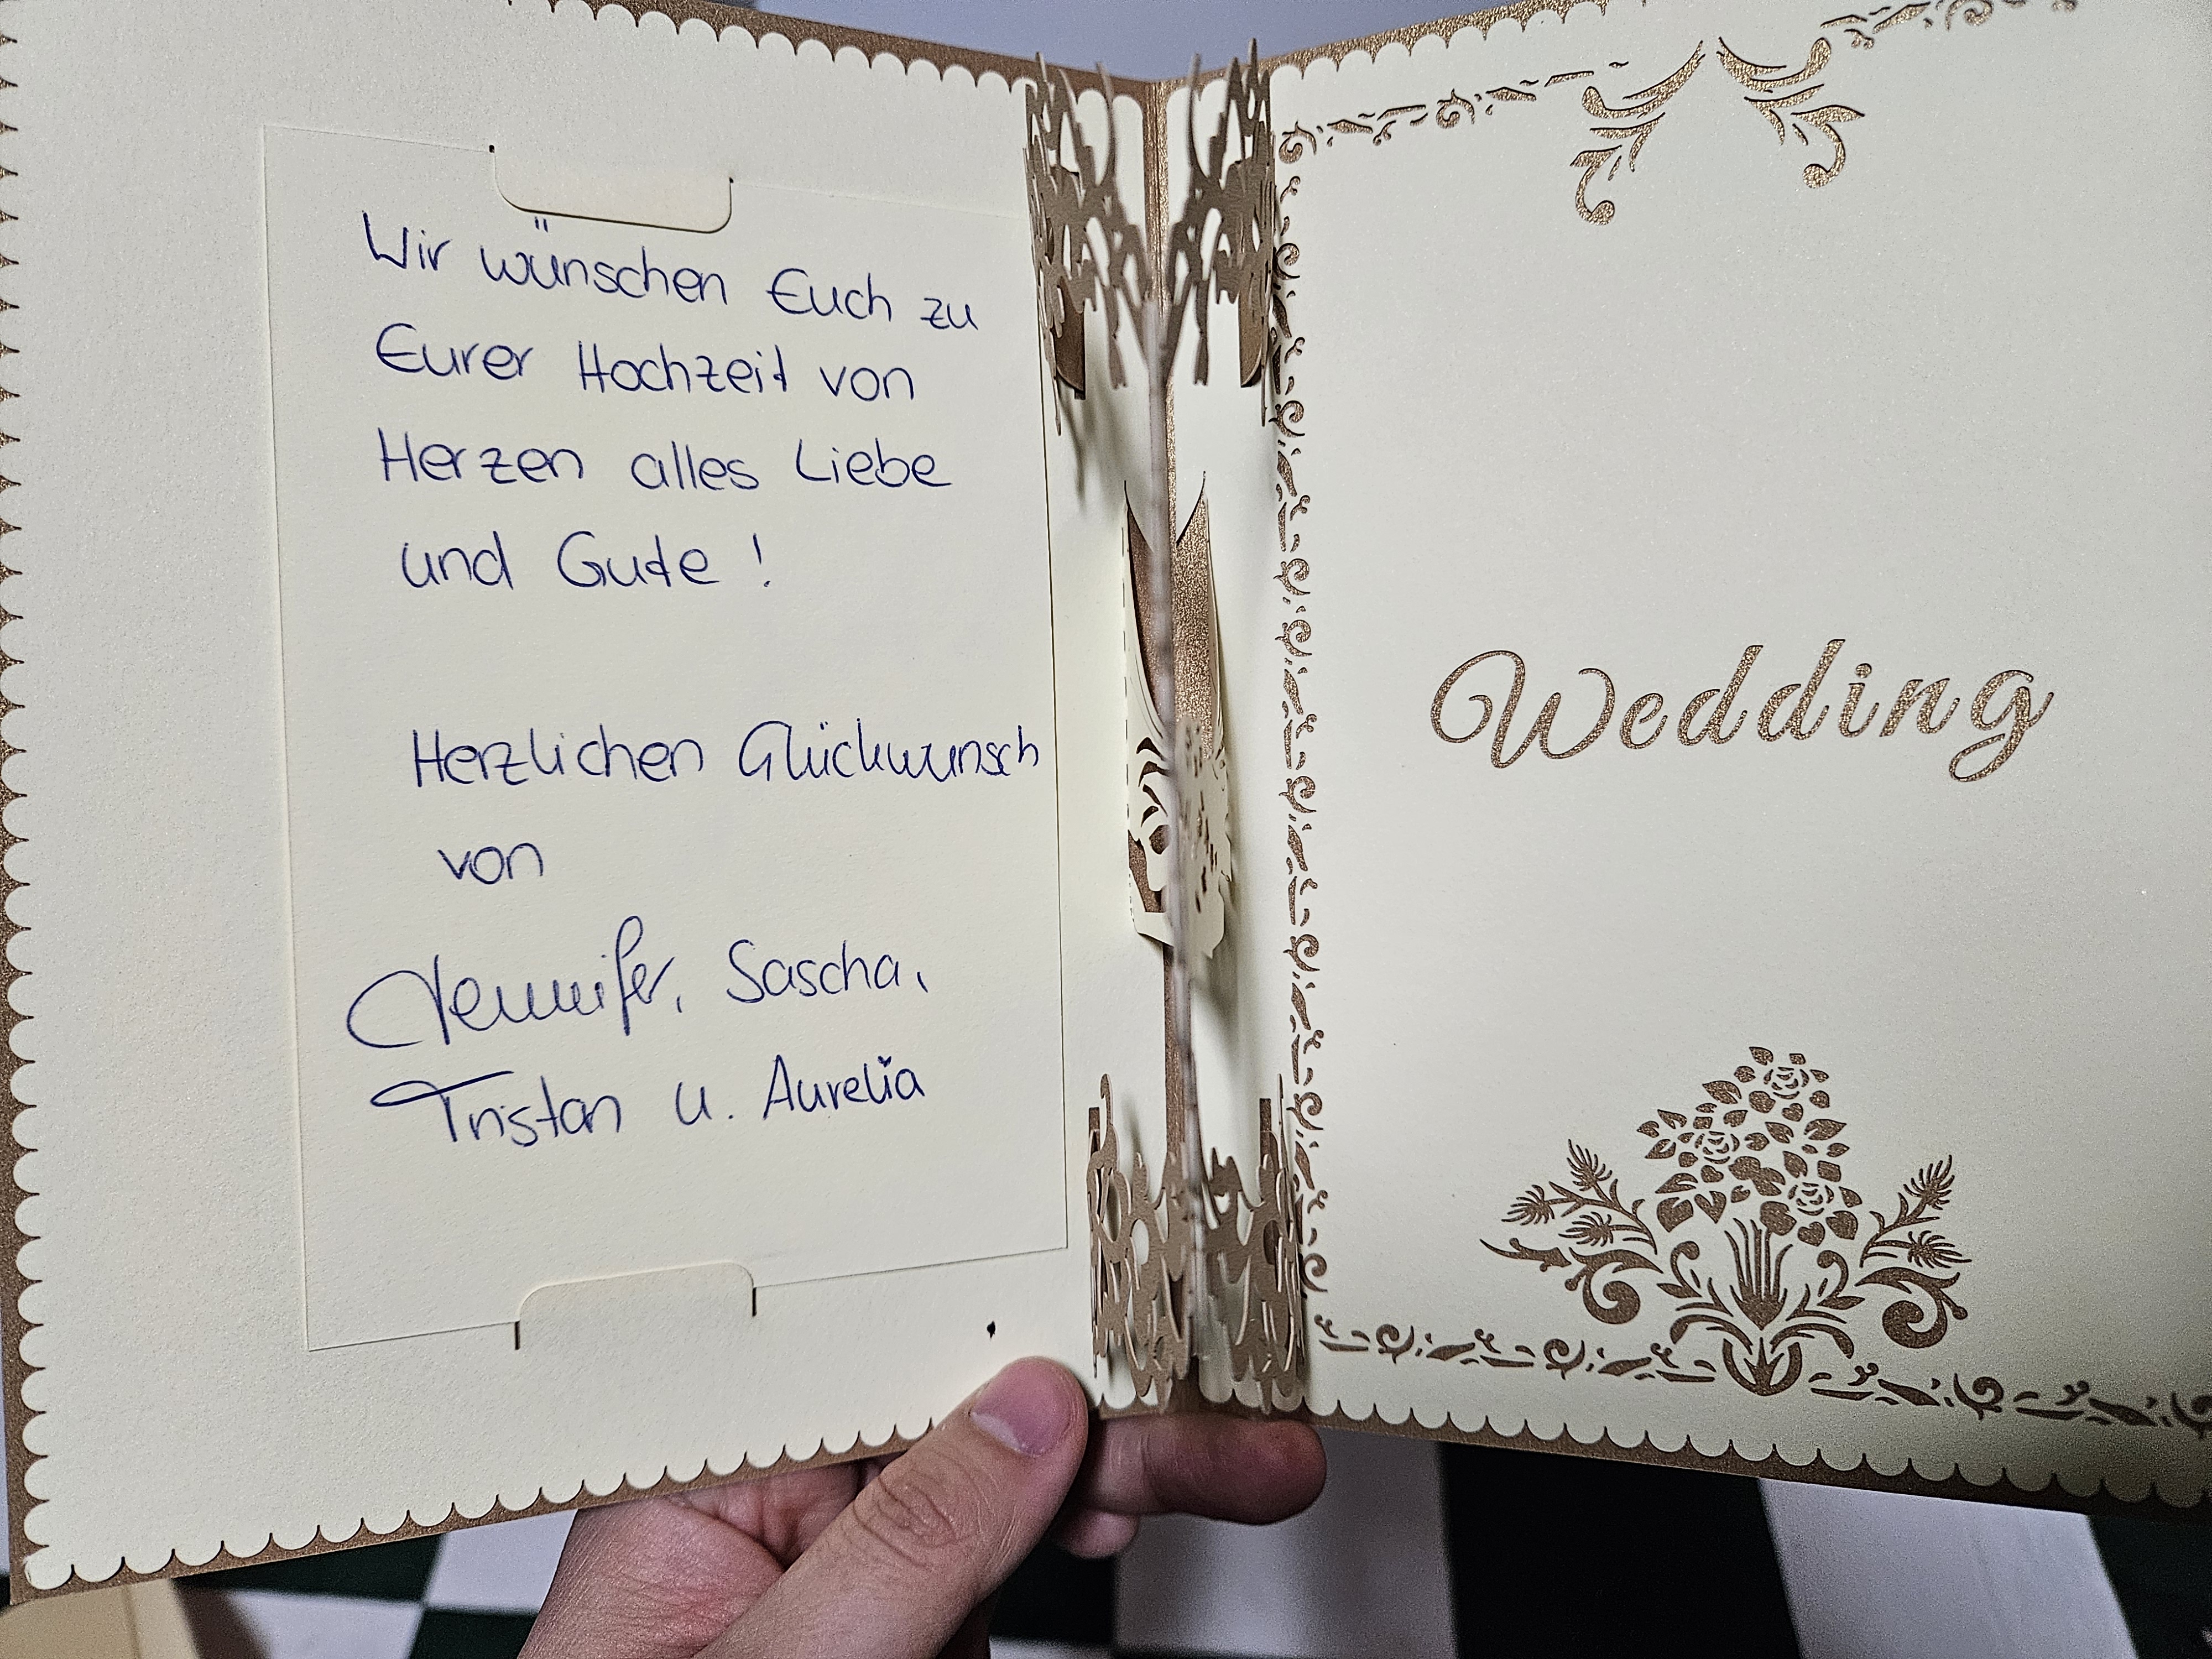 Wir wünschen Euch zu
Eurer Hochzeit von
Herzen alles Liebe
und Gute !
Herzlichen Glückwunsch
von
Jennifer, Sascha,
Tristan u. Aurelia
Wedding